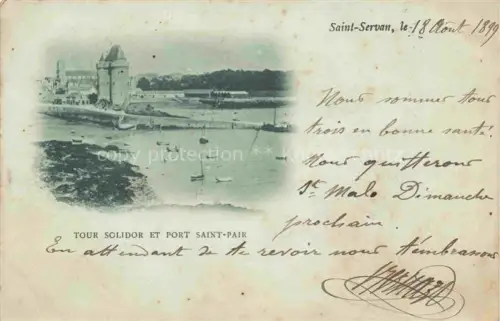 Saint-Servan, le 18 Aout 1899
Nous sommes tous
trois en bonne santé.
Nous quitterons
St Malo Dimanche
prochain.
TOUR SOLIDOR ET PORT SAINT-PAIR
En attendant de te revoir nous t'embrassons
copy protection